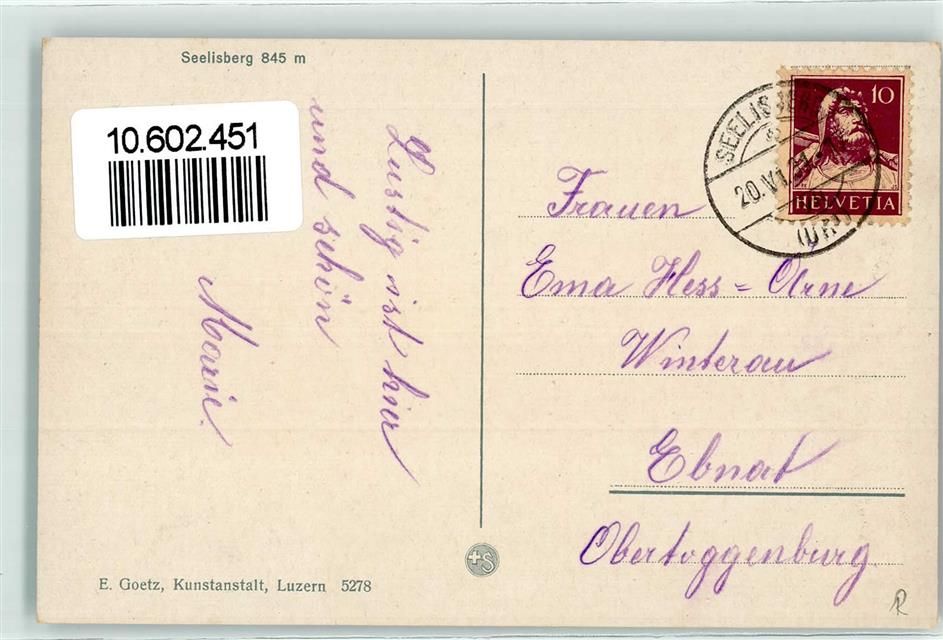 Seelisberg 845 m
10.602.451
Lustig ist hier
und schön
Marie.
E. Goetz, Kunstanstalt, Luzern 5278
+S
10
HELVETIA
SEELISBERG
20.VI.
(URI)
Frauen
Ema Hess = Arne
Winterau
Ebnat
Obertoggenburg.
R